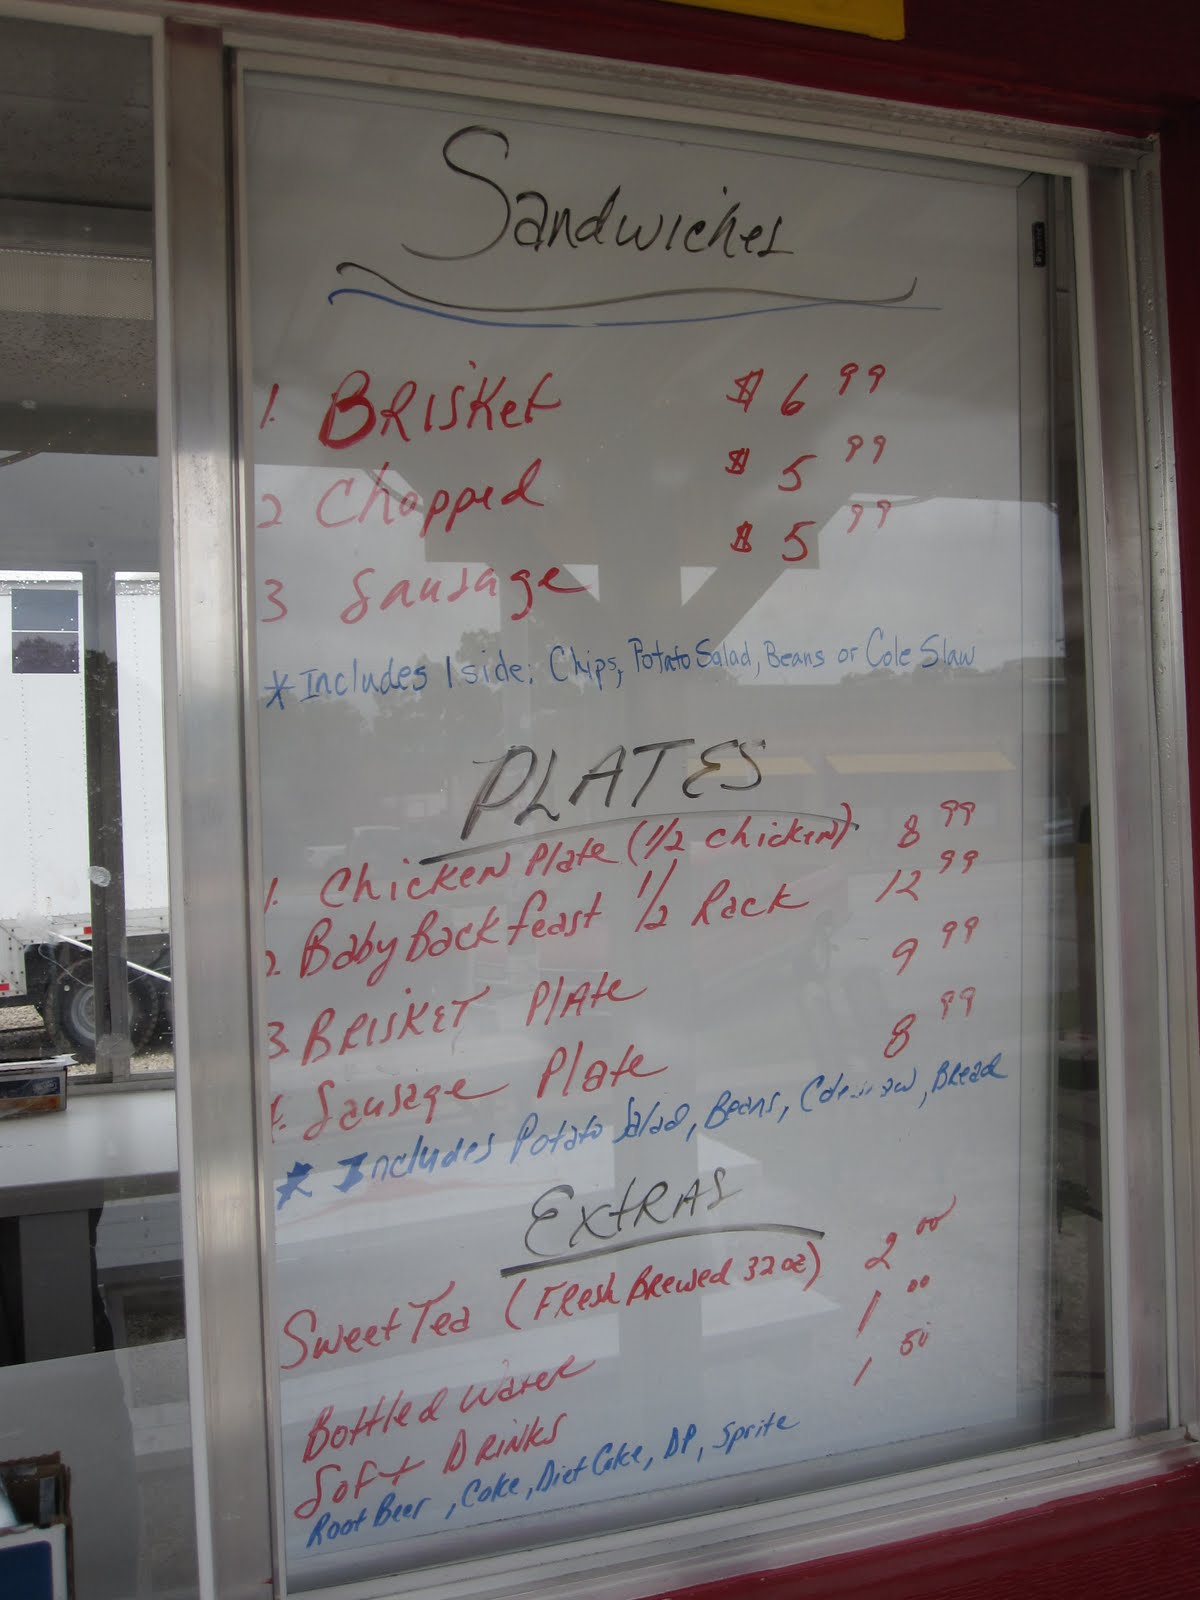 Sandwiches
1. BRISKet $6 99
2 Chopped $5 99
3 Sausage $5 99
* Includes 1 side: Chips, Potato Salad, Beans or Cole Slaw
PLATES
1. Chicken Plate (1/2 chicken) 8 99
2. Baby Back feast 1/2 Rack 12 99
3. BRISKET Plate 9 99
4. Sausage Plate 8 99
* Includes Potato Salad, Beans, Coleslaw, Bread
EXtRAS
Sweet Tea (Fresh Brewed 32 oz) 2 00
Bottled Water 1 00
Soft DRINKS 1 50
Root Beer, Coke, Diet Coke, DP, Sprite